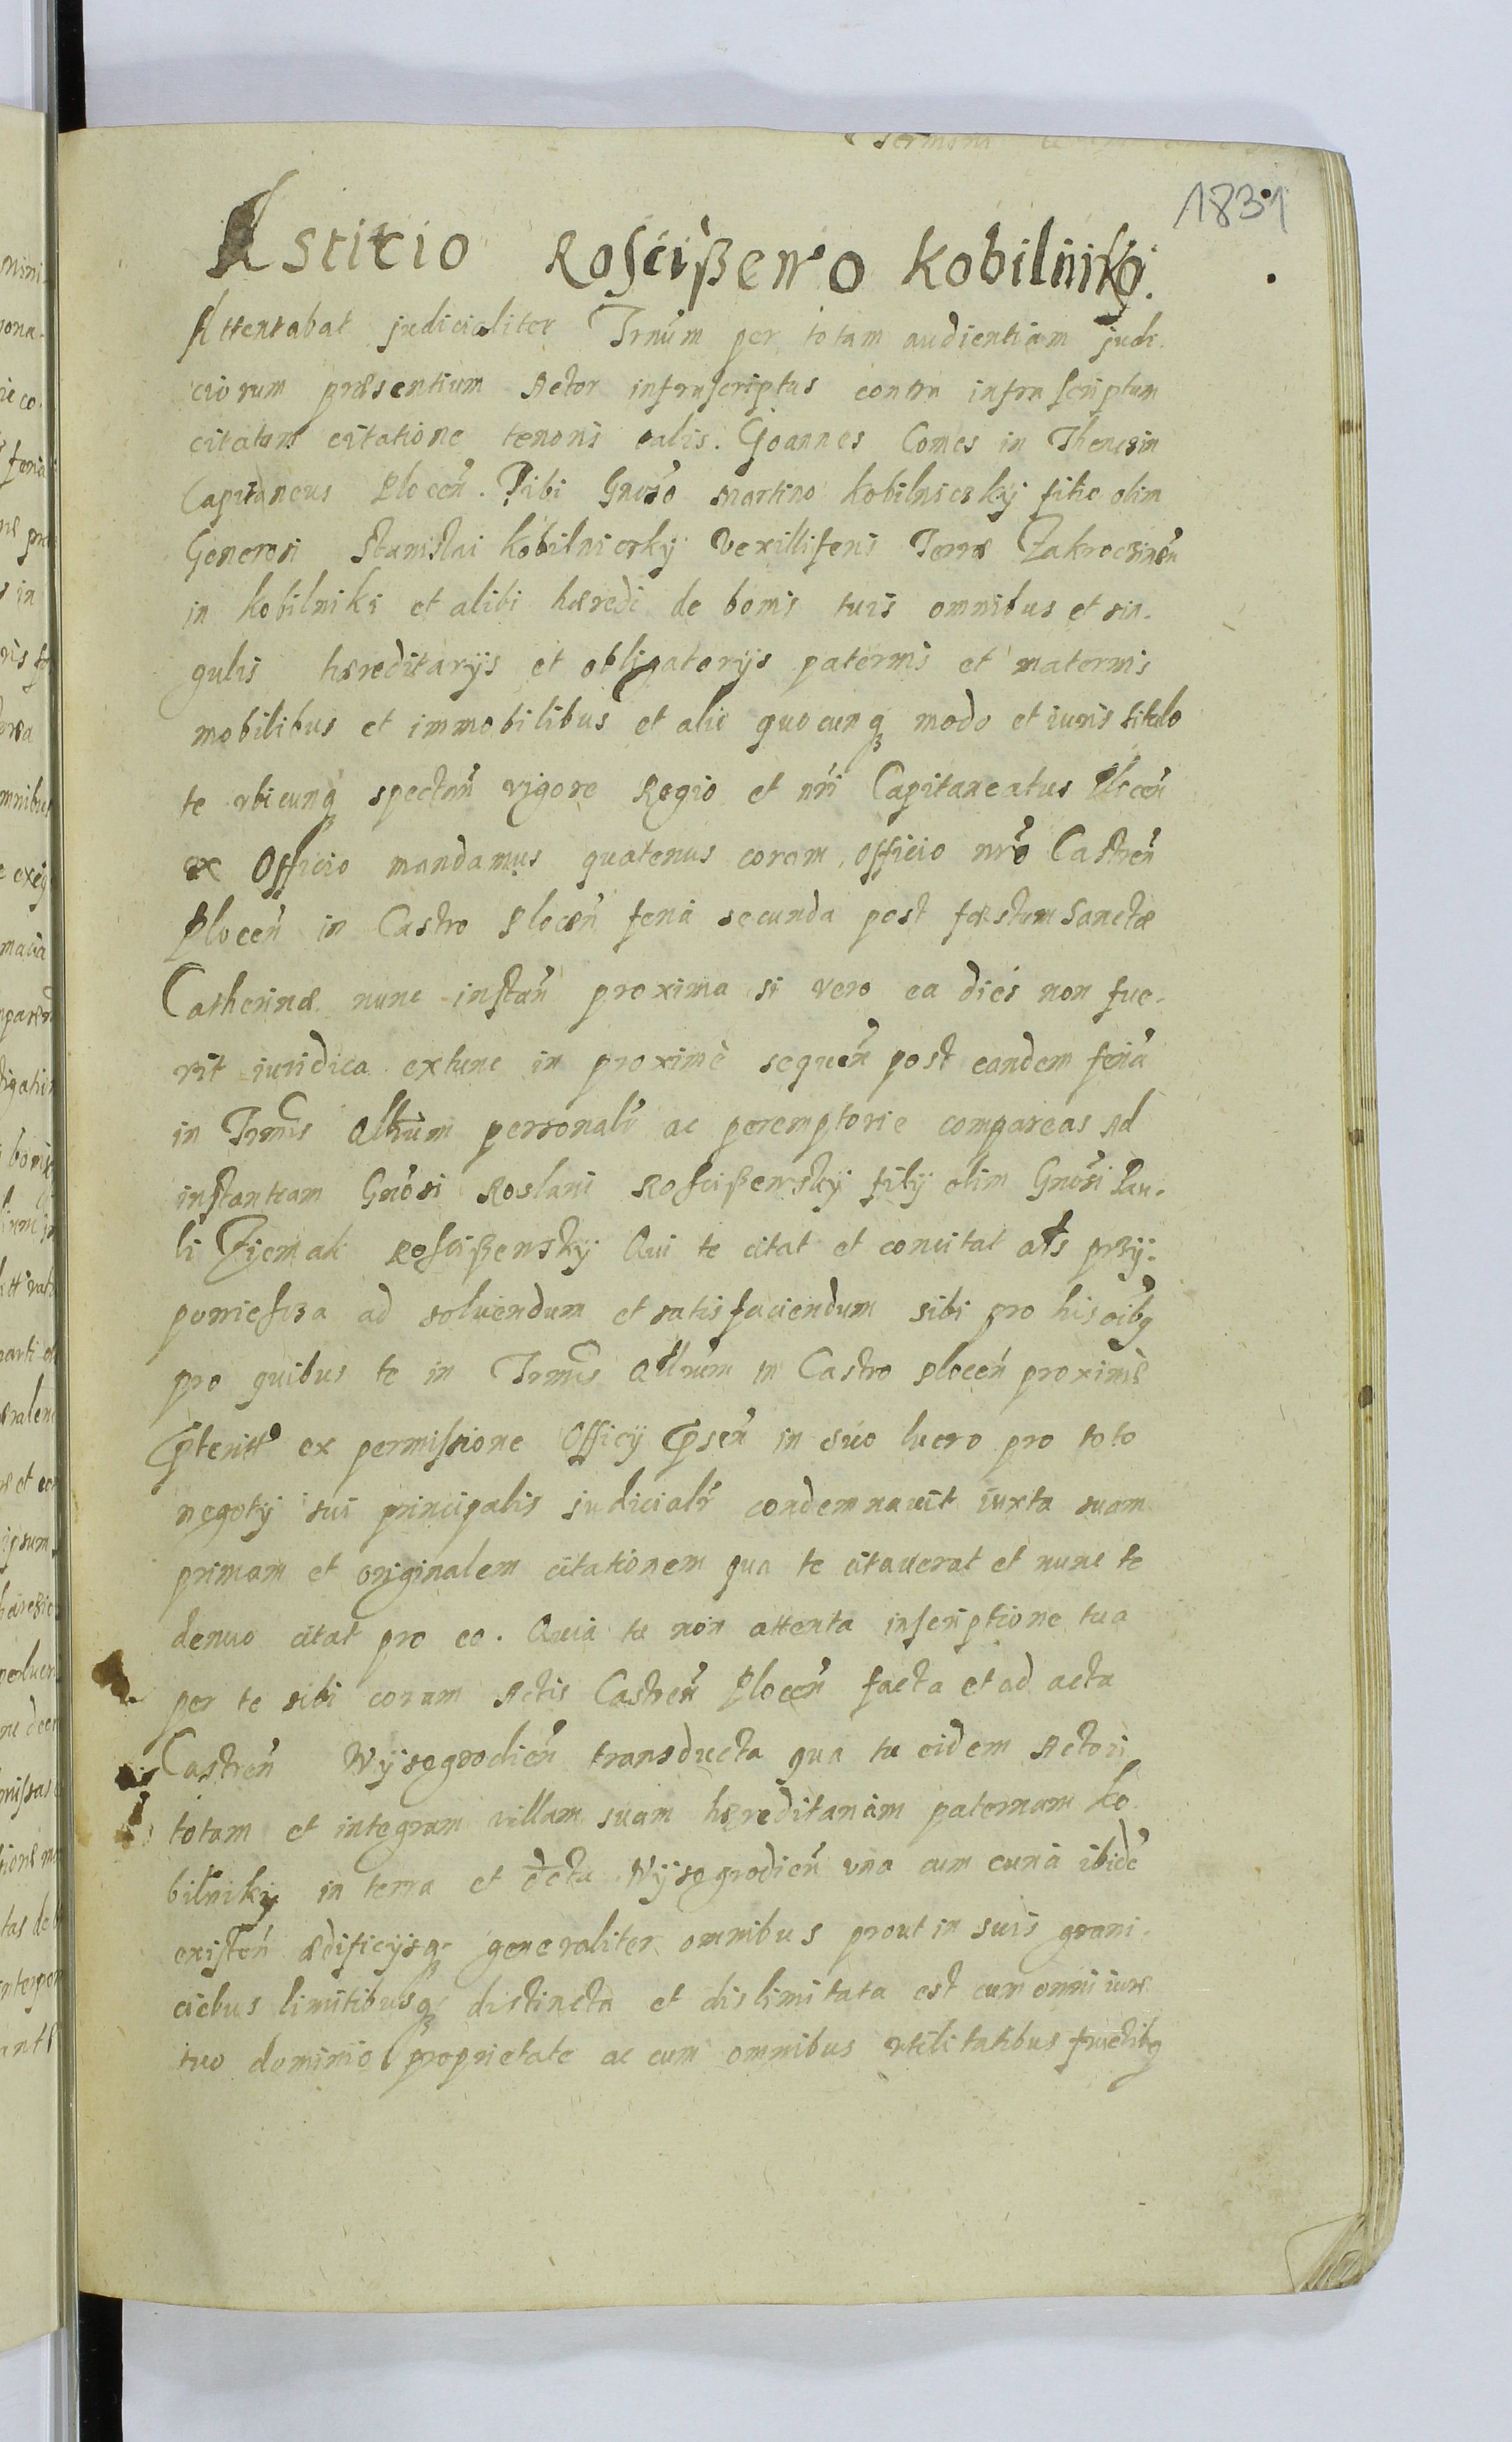 1831
Astitio Rosciβewo Kobilniky.
Attentabat judicialiter Trnúm per totam audientiam judi
ciorum præsentium Actor infrascriptus contra infrascriptum
citatum citatione tenoris talis. Joannes Comes in Thenczin
Capitaneus Plocen̄. Tibi Gnŏso Martino Kobilniczkÿ filio olim
Generosi Stanislai Kobilniczkÿ Vexilliferi Terræ Zakroczimen̄
in Kobilniki et alibi hæredi de bonis tuis omnibus et sin-
gulis hæreditarijs et obligatorijs paternis et maternis
mobilibus et immobilibus et alio quocunqꝫ modo et iuris titulo
te vbicunqꝫ spectan̄ vigore Regio et nr̄i Capitaneatus Plocen̄
ex Officio mandamus quatenus coram officio nr̄o Castren̄
Plocen̄ in Castro Plocen̄ feria secunda post fæstum Sanctæ
Catherinæ nunc instan̄ proxima si vero ea dies non fue-
rit iuridica extunc in proximè sequen̄ post eandem feria
in Trmis Q̄llrum personalr̄ ac peremptorie compareas Ad
instantiam Gnŏsi Roslani Rosciβewskÿ filÿ olim Gnŏsi Pau-
li Ziemak Rosciβewskÿ Qui te citat et concitat al̄s przÿ-
powiescza ad soluendum et satisfaciendum sibi pro his oīb9
pro quibus te in Trmis Q̄llrum in Castro plocen̄ proximè
p̄terit̄t ex permissione Officÿ p̄sen̄ in súo lucro pro toto
negotÿ sui principalis judicialr̄ condemnauit iuxta suam
primam et originalem citationem qua te citauerat et nunc te
denuo citat pro eo. Quia tu non attenta inscriptione tua
per te sibi coram Actis Castren̄ Plocen̄ facta et ad acta
Castren̄ Wÿsegrodien̄ transducta qua tu eidem Actori
totam et integram villam suam hæreditariam paternam Ko
bilniky in terra et d̄ctu Wÿsegrodien̄ vna cum curia ibidē
existen̄ ædificijsqꝫ generaliter omnibus prout in suis grani-
ciebus limitibusqꝫ distincta et dislimitata est cum omni iure
tuo dominio proprietate ac cum omnibus vtilitatibus fructib9